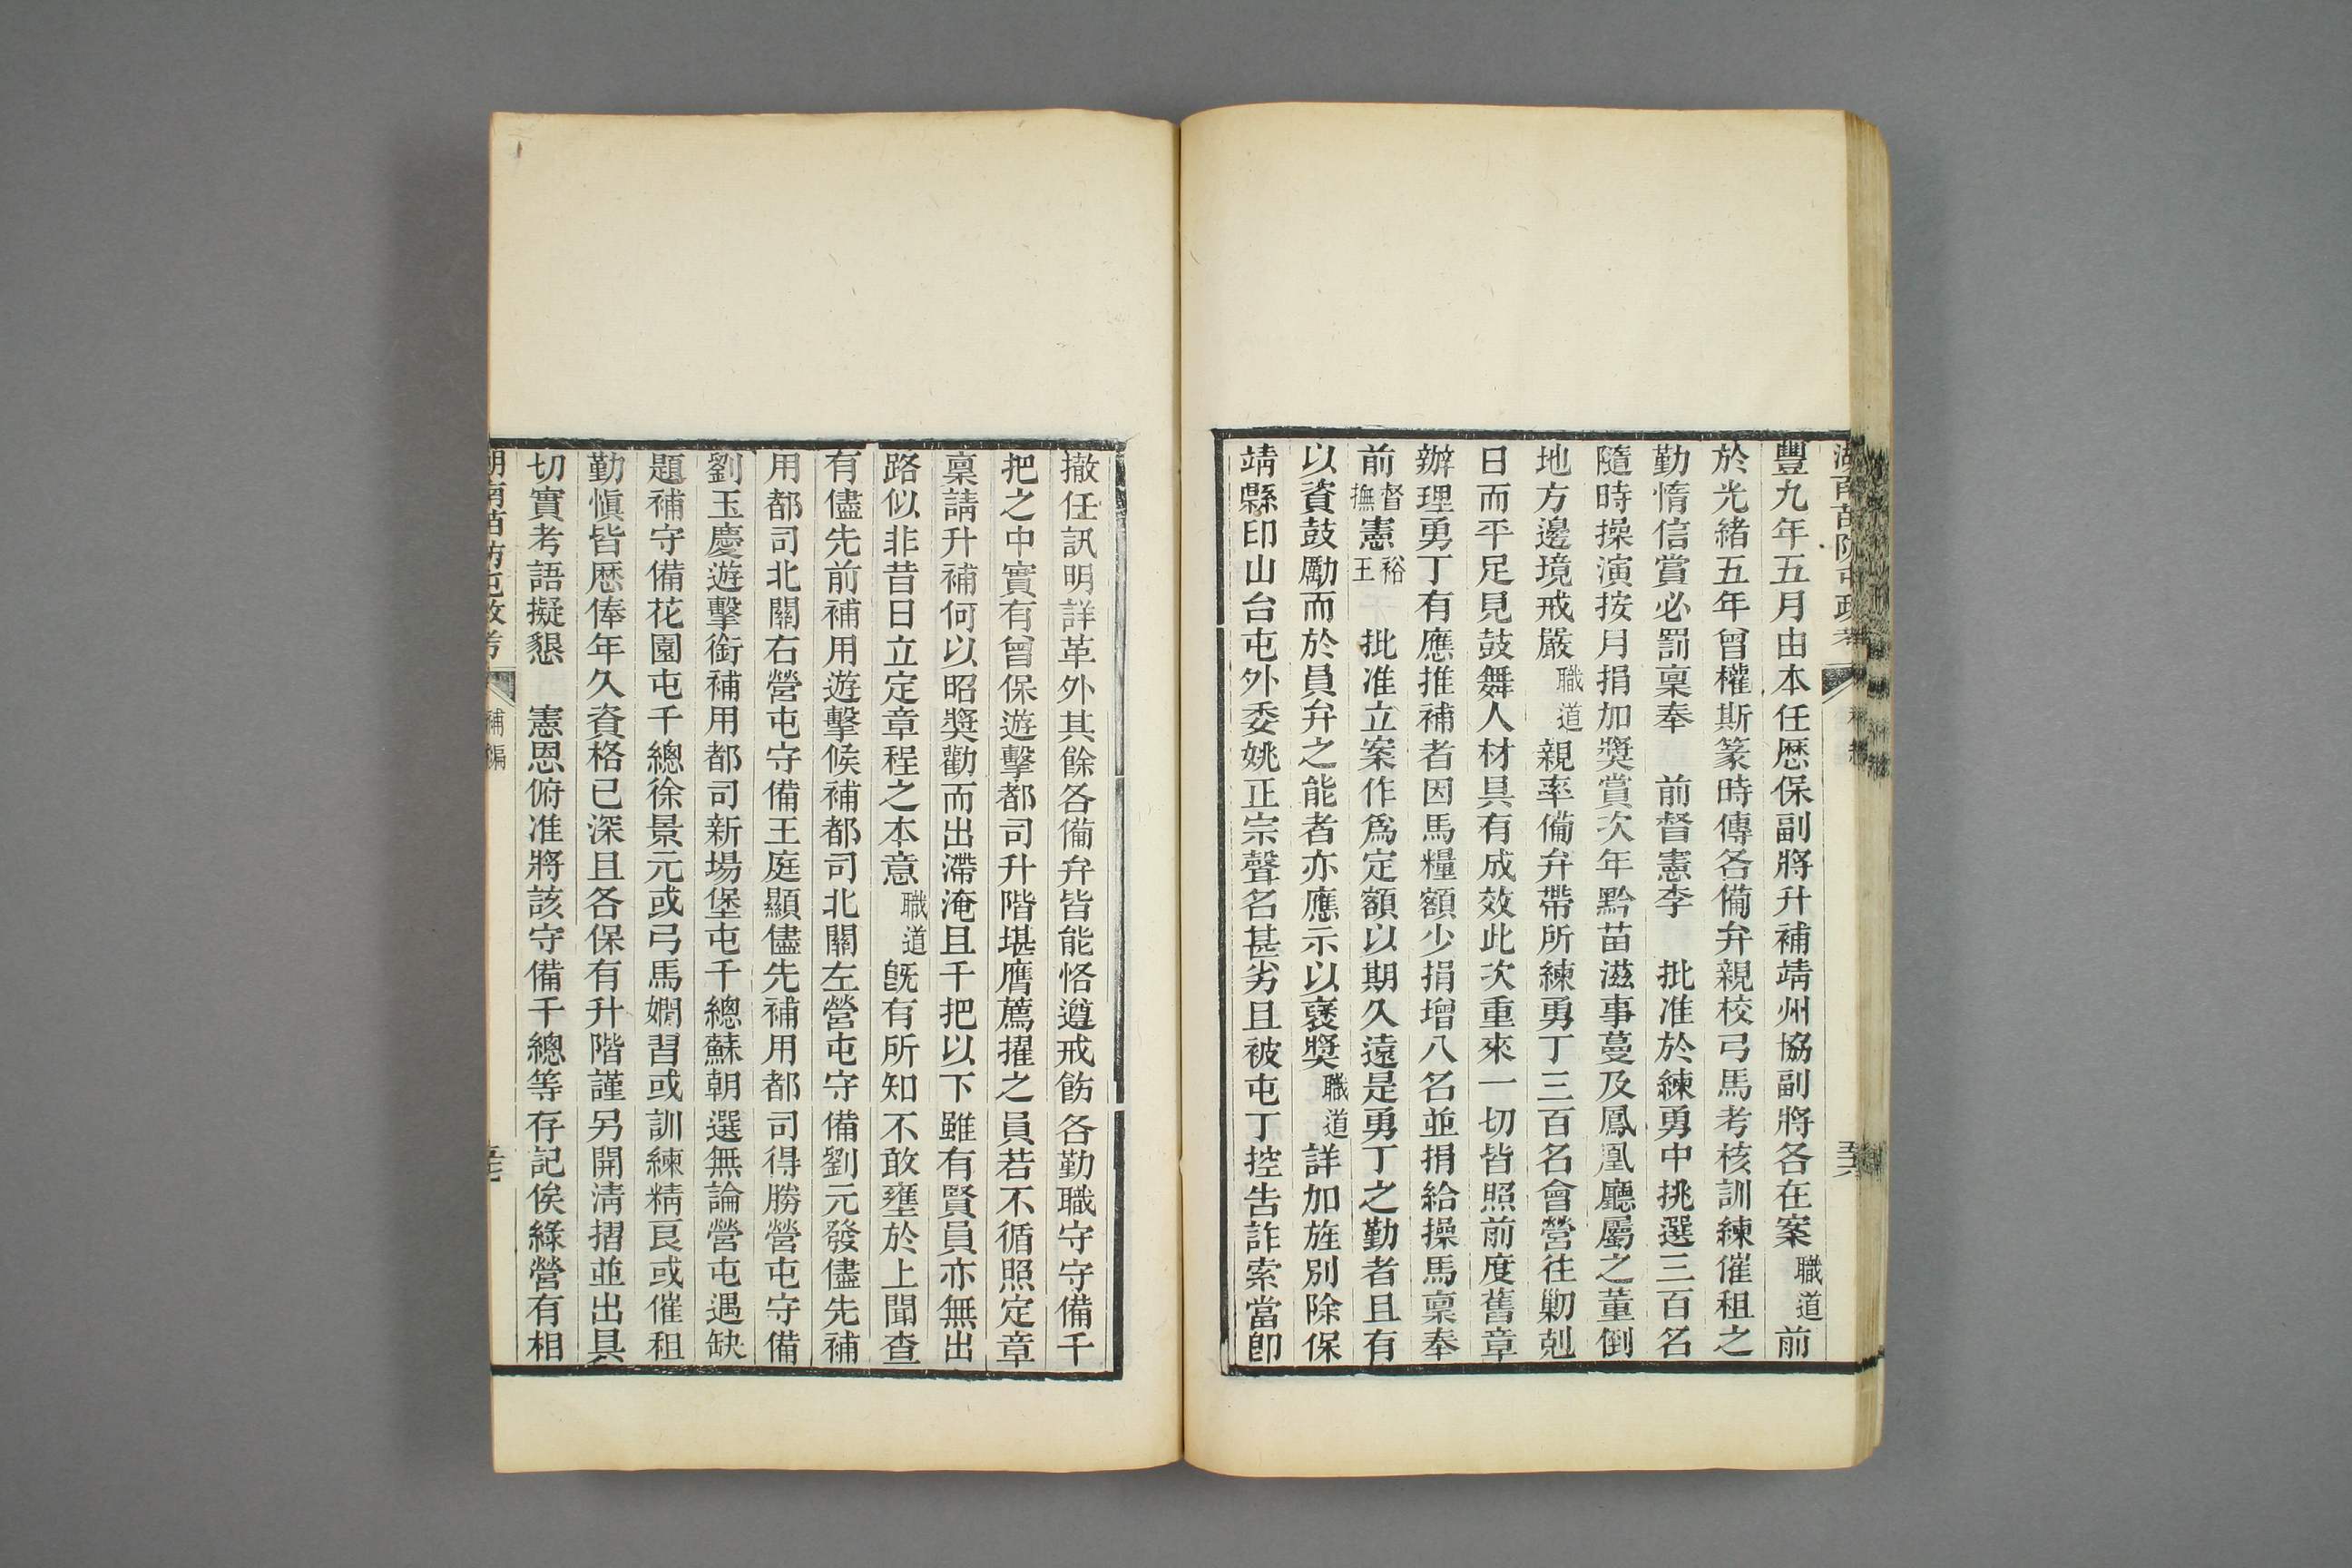 湖南苗防屯政考
補編
豐九年五月由本任歷保副將升補靖州協副將各在案職道前
於光緒五年曾權斯篆時傳各備弁親校弓馬考核訓練催租之
勤惰信賞必罰稟奉　前督憲李　批准於練勇中挑選三百名
隨時操演按月捐加獎賞次年黔苗滋事蔓及鳳凰廳屬之董倒
地方邊境戒嚴職道親率備弁帶所練勇丁三百名會營往勦剋
日而平足見鼓舞人材具有成效此次重來一切皆照前度舊章
辦理勇丁有應推補者因馬糧額少捐增八名並捐給操馬稟奉
前督撫憲裕王　批准立案作爲定額以期久遠是勇丁之勤者且有
以資鼓勵而於員弁之能者亦應示以襃獎職道詳加旌別除保
靖縣印山台屯外委姚正宗聲名甚劣且被屯丁控告詐索當卽
撤任訊明詳革外其餘各備弁皆能恪遵戒飭各勤職守守備千
把之中實有曾保遊擊都司升階堪膺薦擢之員若不循照定章
稟請升補何以昭獎勸而出滯淹且千把以下雖有賢員亦無出
路似非昔日立定章程之本意職道旣有所知不敢壅於上聞查
有儘先前補用遊擊候補都司北關左營屯守備劉元發儘先補
用都司北關右營屯守備王庭顯儘先補用都司得勝營屯守備
劉玉慶遊擊銜補用都司新場堡屯千總蘇朝選無論營屯遇缺
題補守備花園屯千總徐景元或弓馬嫺習或訓練精良或催租
勤愼皆歷俸年久資格已深且各保有升階謹另開淸摺並出具
切實考語擬懇　憲恩俯准將該守備千總等存記俟綠營有相
湖南苗防屯政考
補編